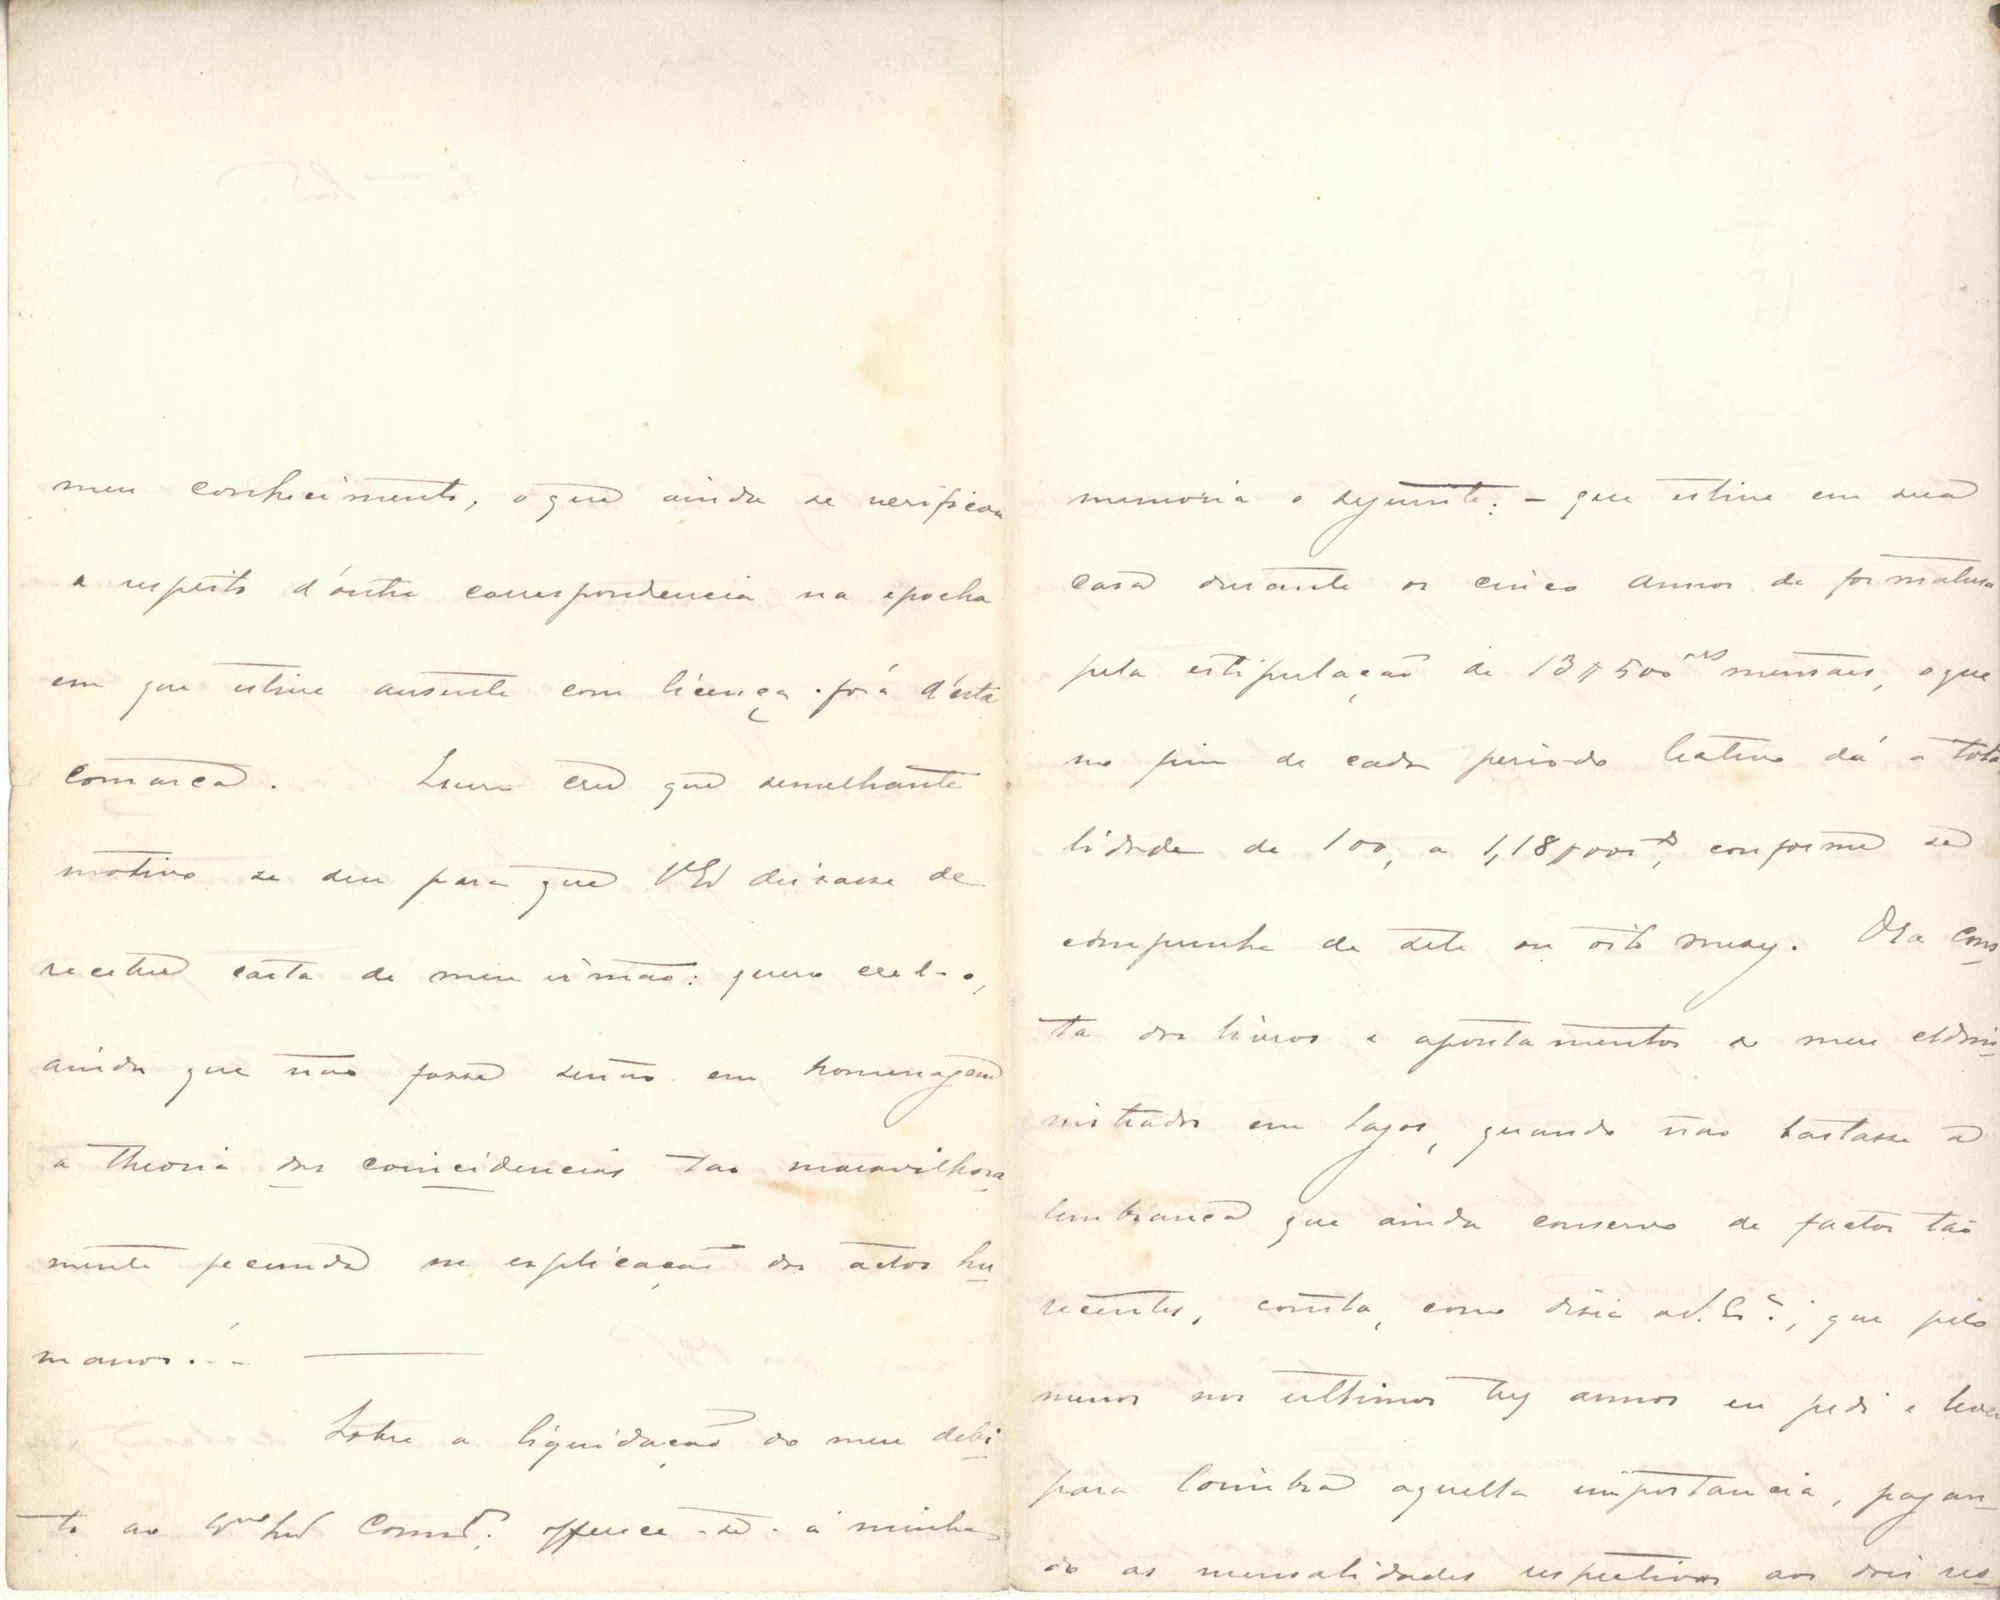 meu conhecimento, o que ainda se verificou
a respeito d'outra correspondencia na epocha
em que estive ausente com licença fóra d'esta
comarca. Quero crer que semelhante
motivo se deu para que VEx deixasse de
receber carta de meu irmão: quero crel-o,
ainda que não fosse senão em homenagem
a theoria das coincidencias tao maravilhosa
mente fecunda na explicação dos actos hu
manos...
Sobre a liquidação do meu debi
to ao Exmo Snr Comdor offerece-se á minha
memoria o seguinte: - que estive em sua
casa durante os cinco annos de formatura
pela estipulação de 13$500 reis mensaes, o que
no fim de cada periodo lectivo dá a tota
lidade de 100, a 118$000rs, conforme se
compunha de sete ou oito mezes. Ora cons
ta dos livros e apontamentos do meu admi
nistrador em Lagos, quando não bastasse a
lembrança que ainda conservo de factos tão
recentes, consta, como disse a V. Exª; que pelo
menos nos ultimos tres annos eu pedi e levei
para Coimbra aquella importancia, pagan-
do as mensalidades respectivas aos dois res